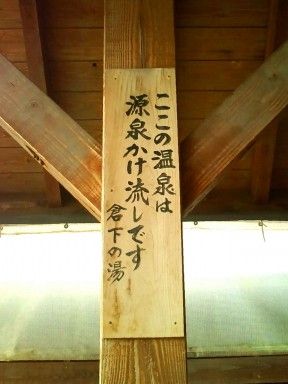 ここの温泉は
源泉かけ流しです
倉下の湯